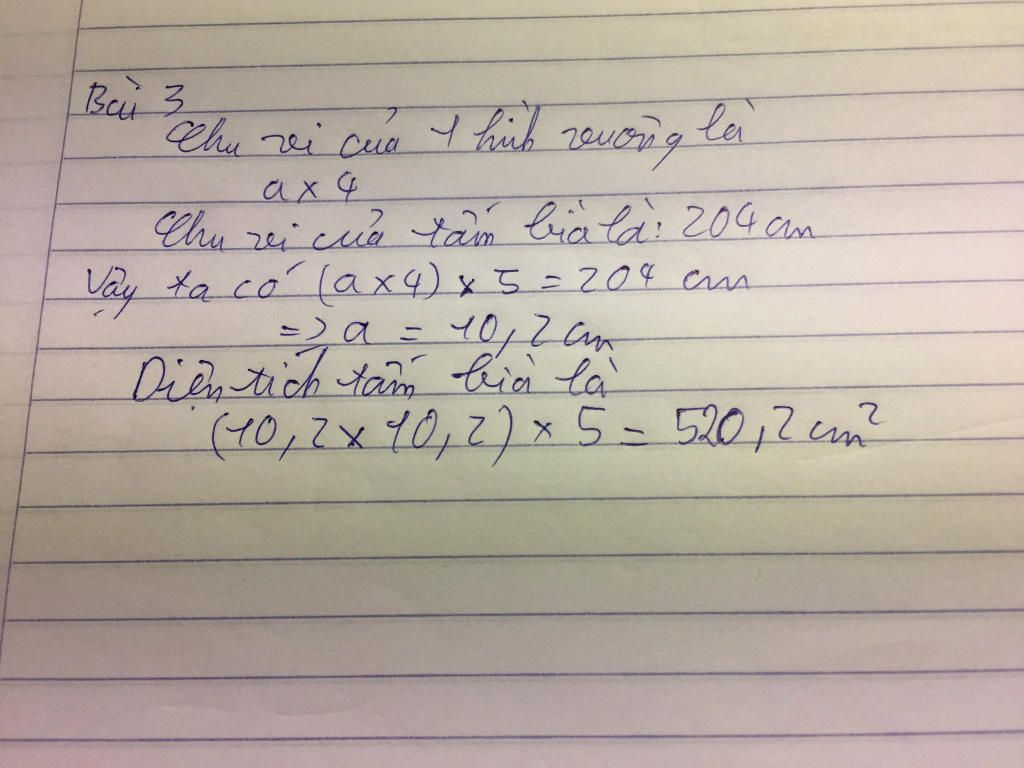 Bài 3
Chu vi của 1 hình vuông là
a x 4
Chu vi của tấm bìa là: 204 cm
Vậy ta có (a x 4) x 5 = 204 cm
=> a = 10,2 cm
Diện tích tấm bìa là
(10,2 x 10,2) x 5 = 520,2 cm²